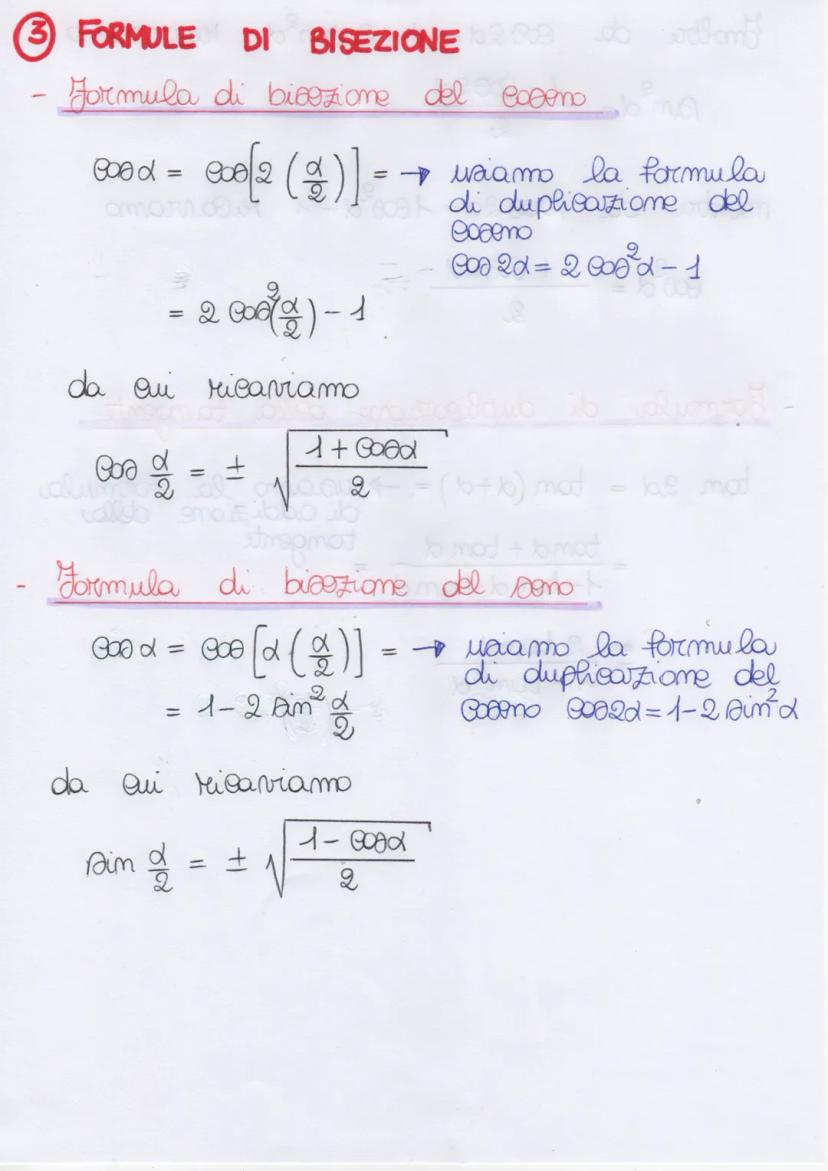 ③ FORMULE DI BISEZIONE
- Formula di bisezione del coseno
cos α = cos[2 (α/2)] = → usiamo la formula
di duplicazione del
coseno
cos 2α = 2 cos²α - 1
= 2 cos²(α/2) - 1
da cui ricaviamo
cos α/2 = ± √((1 + cos α)/2)
- Formula di bisezione del seno
cos α = cos [α (α/2)] = → usiamo la formula
di duplicazione del
= 1 - 2 sin² α/2
coseno cos2α = 1 - 2 sin²α
da cui ricaviamo
sin α/2 = ± √((1 - cos α)/2)